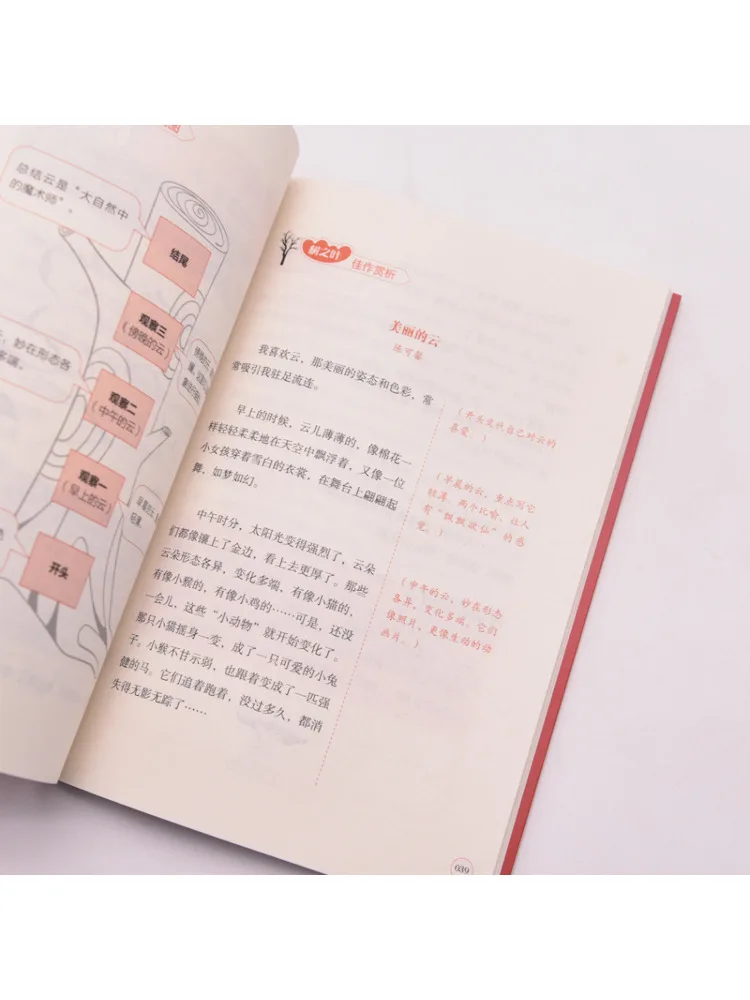 图
总结云是“大自然中
的魔术师”。
结尾
观察三
（傍晚的云）
妙在形态各
观察二
（中午的云）
观察一
（早上的云）
开头
树之叶
佳作赏析
美丽的云
陈可馨
我喜欢云，那美丽的姿态和色彩，常
常吸引我驻足流连。
早上的时候，云儿薄薄的，像棉花一
样轻轻柔柔地在天空中飘浮着，又像一位
小女孩穿着雪白的衣裳，在舞台上翩翩起
舞，如梦如幻。
中午时分，太阳光变得强烈了，云朵
们都像镶上了金边，看上去更厚了。那些
云朵形态各异，变化多端，有像小猫的，
有像小猴的，有像小鸡的……可是，还没
一会儿，这些“小动物”就开始变化了。
那只小猫摇身一变，成了一只可爱的小兔
子。小猴不甘示弱，也跟着变成了一匹强
健的马。它们追着跑着，没过多久，都消
失得无影无踪了……
（开头交代自己对云的
喜爱。）
（早晨的云，重点写它
轻薄。两个比喻，让人
有“飘飘欲仙”的感
觉。）
（中午的云，妙在形态
各异，变化多端。它们
像照片，更像生动的动
画片。）
039